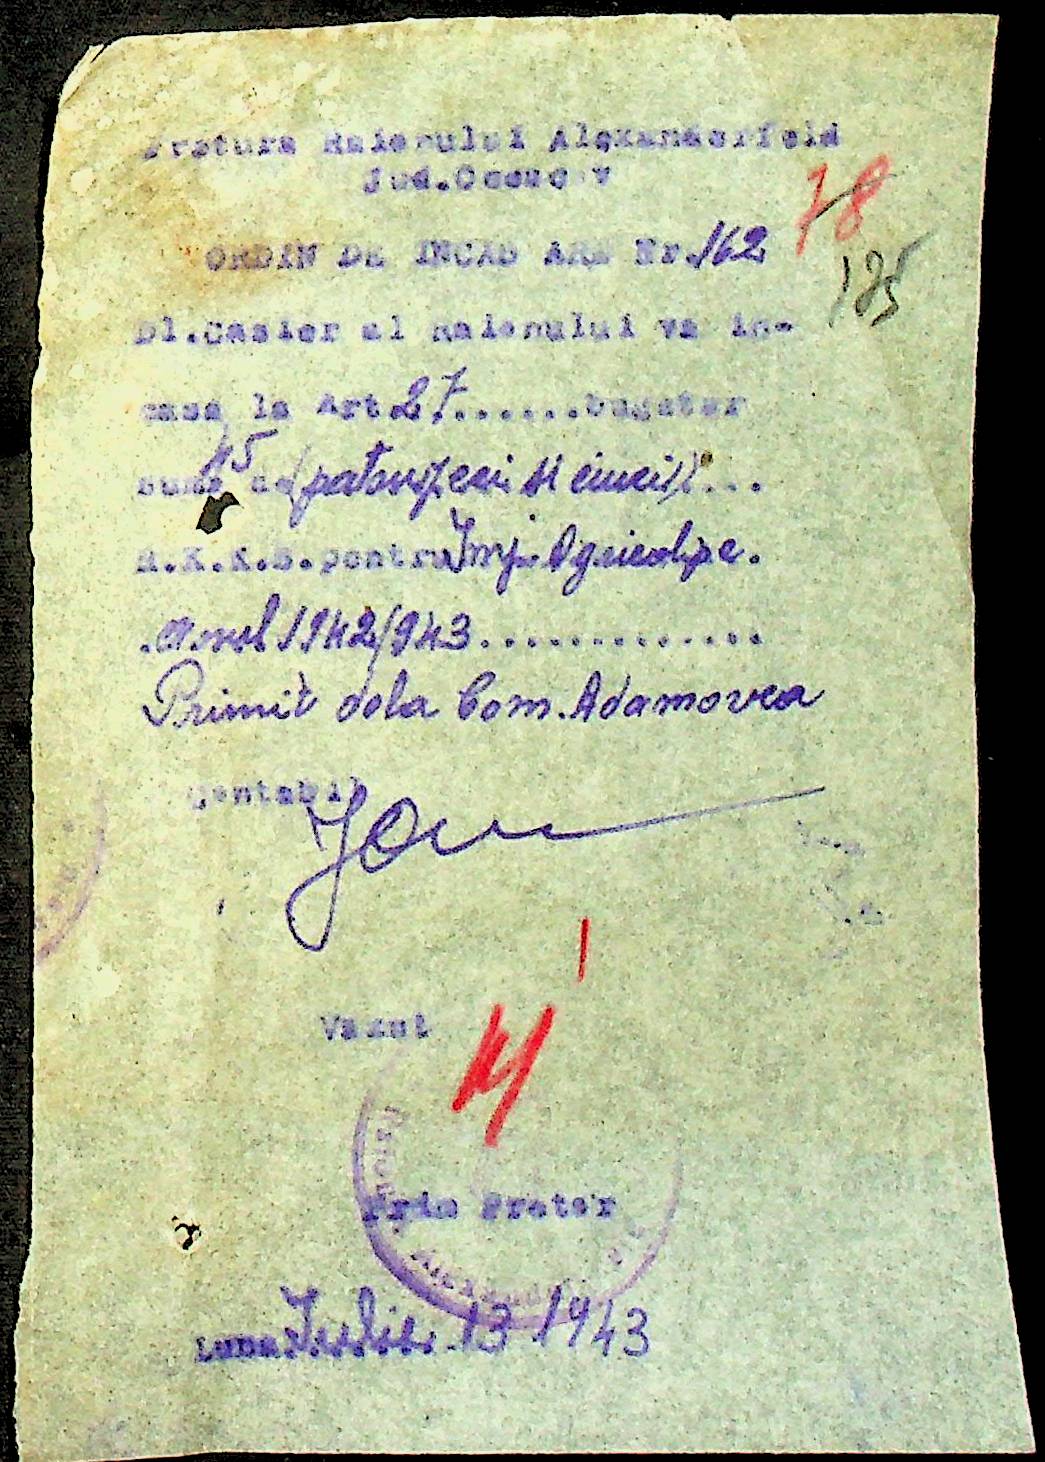 Pretura Raionului Alexanderfeld
Jud.Oceacov
78
ORDIN DE INCAS ARE Nr.162
185
Dl.Casier al Raionului va in-
casa la Art.27.......bugetar
suma de 45 (patruzeci si cinci)...
R.K.K.S.pentru Imp. Agricol pe.
.Anul 1942/943.............
Primit dela Com. Adamovca
Contabil
Vazut
Prim Pretor
Luna Iulie 13 1943